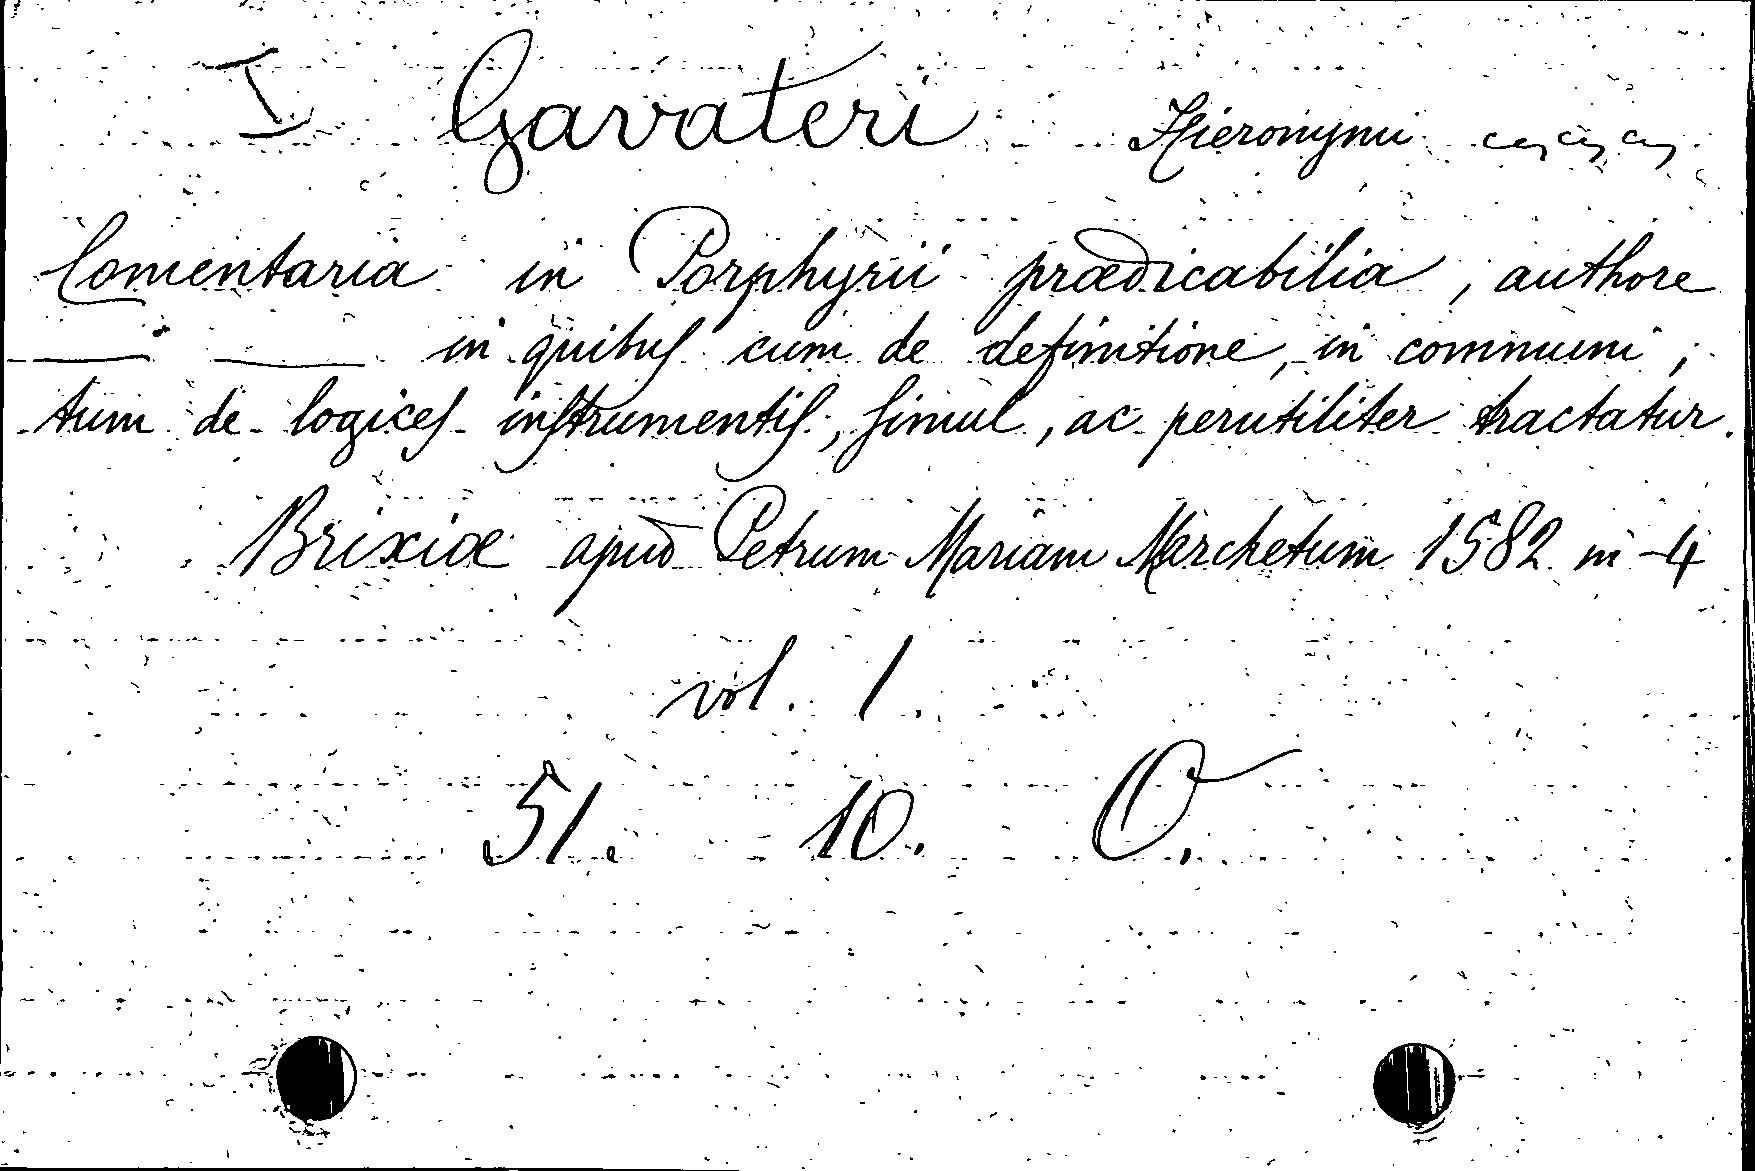 I Gavateri Hieronymi
Comentaria in Porphyrii prædicabilia, authore
— — in quibuſ cum de definitione, in communi,
tum de logiceſ inſtrumentiſ, ſimul, ac perutiliter tractatur.
Brixiæ apud Petrum Mariam Marchetum 1582 in-4
vol. 1.
51. 10. O.